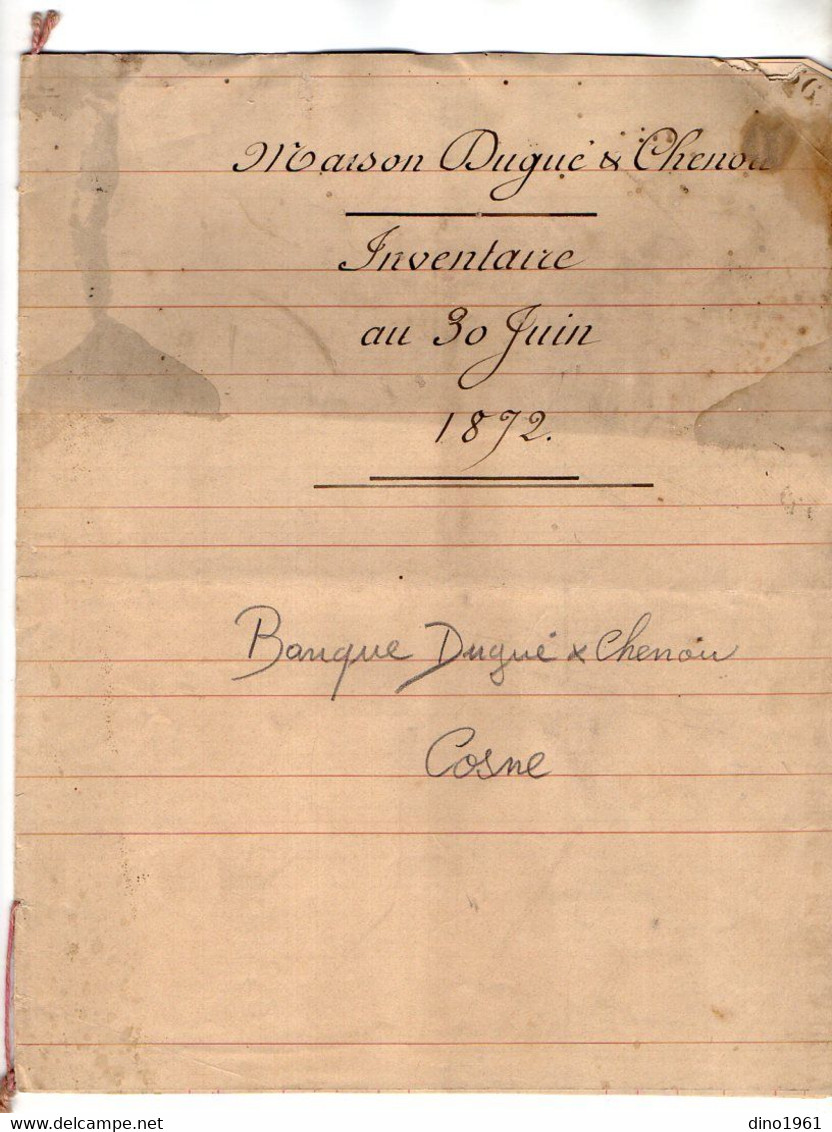 Maison Dugué & Chenou
Inventaire
au 30 Juin
1872.
Banque Dugué & Chenou
Cosne
delcampe.net
dino1961